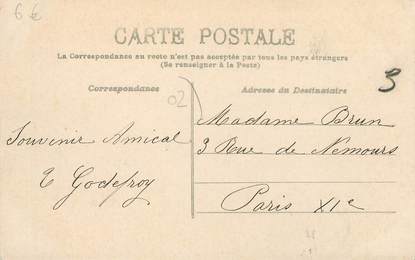 6 €
CARTE POSTALE
La Correspondance au recto n'est pas acceptée par tous les pays étrangers
(Se renseigner à la Poste)
Correspondance
Adresse du Destinataire
02
3
Souvenir Amical
E Godefroy
Madame Brun
3 Rue de Nemours
Paris XIe